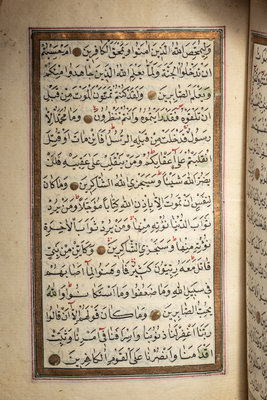 وَلِيُمَحِّصَ اللّٰهُ الَّذِينَ اٰمَنُوا وَيَمْحَقَ الْكَافِرِينَ اَمْ حَسِبْتُمْ
اَنْ تَدْخُلُوا الْجَنَّةَ وَلَمَّا يَعْلَمِ اللّٰهُ الَّذِينَ جَاهَدُوا مِنْكُمْ
وَيَعْلَمَ الصَّابِرِينَ وَلَقَدْ كُنْتُمْ تَمَنَّوْنَ الْمَوْتَ مِنْ قَبْلِ
اَنْ تَلْقَوْهُ فَقَدْ رَاَيْتُمُوهُ وَاَنْتُمْ تَنْظُرُونَ وَمَا مُحَمَّدٌ اِلَّا
رَسُولٌ قَدْ خَلَتْ مِنْ قَبْلِهِ الرُّسُلُ اَفَاِينْ مَاتَ اَوْ قُتِلَ
انْقَلَبْتُمْ عَلٰى اَعْقَابِكُمْ وَمَنْ يَنْقَلِبْ عَلٰى عَقِبَيْهِ فَلَنْ
يَضُرَّ اللّٰهَ شَيْئًا وَسَيَجْزِي اللّٰهُ الشَّاكِرِينَ وَمَا كَانَ
لِنَفْسٍ اَنْ تَمُوتَ اِلَّا بِاِذْنِ اللّٰهِ كِتَابًا مُؤَجَّلًا وَمَنْ يُرِدْ
ثَوَابَ الدُّنْيَا نُؤْتِهِ مِنْهَا وَمَنْ يُرِدْ ثَوَابَ الْاٰخِرَةِ
نُؤْتِهِ مِنْهَا وَسَنَجْزِي الشَّاكِرِينَ وَكَاَيِّنْ مِنْ نَبِيٍّ
قَاتَلَ مَعَهُ رِبِّيُّونَ كَثِيرٌ فَمَا وَهَنُوا لِمَا اَصَابَهُمْ
فِي سَبِيلِ اللّٰهِ وَمَا ضَعُفُوا وَمَا اسْتَكَانُوا وَاللّٰهُ
يُحِبُّ الصَّابِرِينَ وَمَا كَانَ قَوْلَهُمْ اِلَّا اَنْ قَالُوا
رَبَّنَا اغْفِرْ لَنَا ذُنُوبَنَا وَاِسْرَافَنَا فِي اَمْرِنَا وَثَبِّتْ
اَقْدَامَنَا وَانْصُرْنَا عَلَى الْقَوْمِ الْكَافِرِينَ